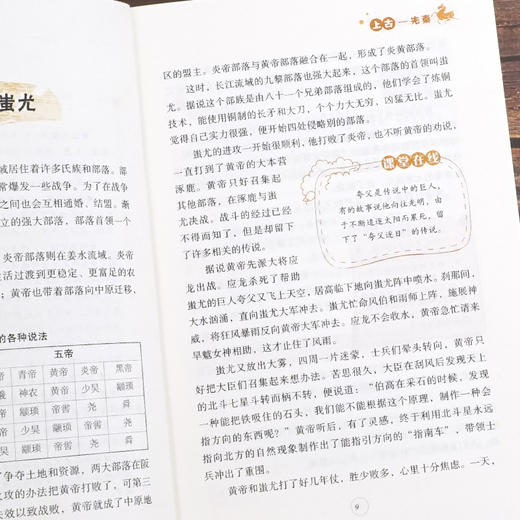 蚩尤
域居住着许多氏族和部落。部
常爆发一些战争。为了在战争
之间也会互相通婚、结盟。渐
立的强大部落，部落首领一个
炎帝部落则在姜水流域。炎帝
生活过渡到更稳定、更富足的农
，黄帝也带着部落向中原迁移，
的各种说法
五帝
帝 青帝 黄帝 炎帝 黑帝
神农 黄帝 少昊 颛顼
颛顼 帝喾 尧 舜
颛顼 帝喾 尧
少昊 颛顼 帝喾 尧 舜
了争夺土地和资源，两大部落在阪
火攻的办法把黄帝打败了，可第三
失效以致战败，黄帝就成了中原地
上古—先秦
区的盟主。炎帝部落与黄帝部落融合在一起，形成了炎黄部落。
这时，长江流域的九黎部落也强大起来，这个部落的首领叫蚩
尤。据说这个部族是由八十一个兄弟部落组成的，他们学会了炼铜
技术，能使用铜制的长矛和大刀，个个力大无穷，凶猛无比。蚩尤
觉得自己实力很强，便开始四处侵略别的部落。
蚩尤的进攻一开始很顺利，他打败了炎帝，也不听黄帝的劝说，
一直打到了黄帝的大本营
涿鹿。黄帝只好召集起
其他部落，在涿鹿与蚩
尤决战。战斗的经过已经
不得而知了，但是却留下
了许多相关的传说。
据说黄帝先派大将应
龙出战。应龙杀死了帮助
课堂在线
夸父是传说中的巨人，
有的故事说他向往光明，由
于不断追逐太阳而累死，留
下了“夸父逐日”的传说。
蚩尤的巨人夸父又飞上天空，居高临下地向蚩尤阵中喷水。刹那间，
大水汹涌，直向蚩尤大军冲去。蚩尤忙命风伯和雨师上阵，施展神
威，将狂风暴雨反向黄帝大军冲去。应龙不会收水，黄帝急忙请来
旱魃女神相助，这才止住了风雨。
蚩尤又放出大雾，四周一片迷蒙，士兵们晕头转向，黄帝只
好把大臣们召集起来想办法。苦思很久，大臣在刮风后发现天上
的北斗七星斗转而柄不转，便说道：“伯高在采石的时候，发现
一种能把铁吸住的石头，我们能不能根据这个原理，制作一种会
指方向的东西呢？”黄帝听后，有了灵感，终于利用北斗星永远
指向北方的自然现象制作出了能指引方向的“指南车”，带领士
兵冲出了重围。
黄帝和蚩尤打了好几年仗，胜少败多，心里十分焦虑。一天，
9